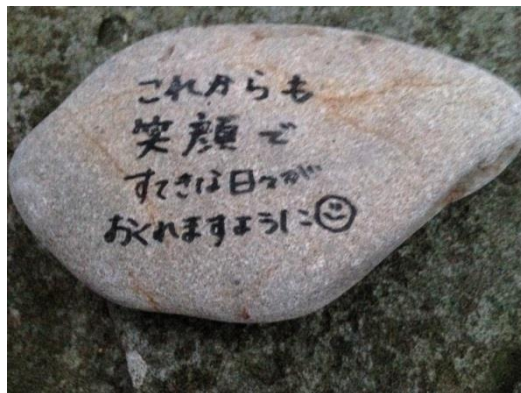 これからも
笑顔で
すてきな日々が
おくれますように☺